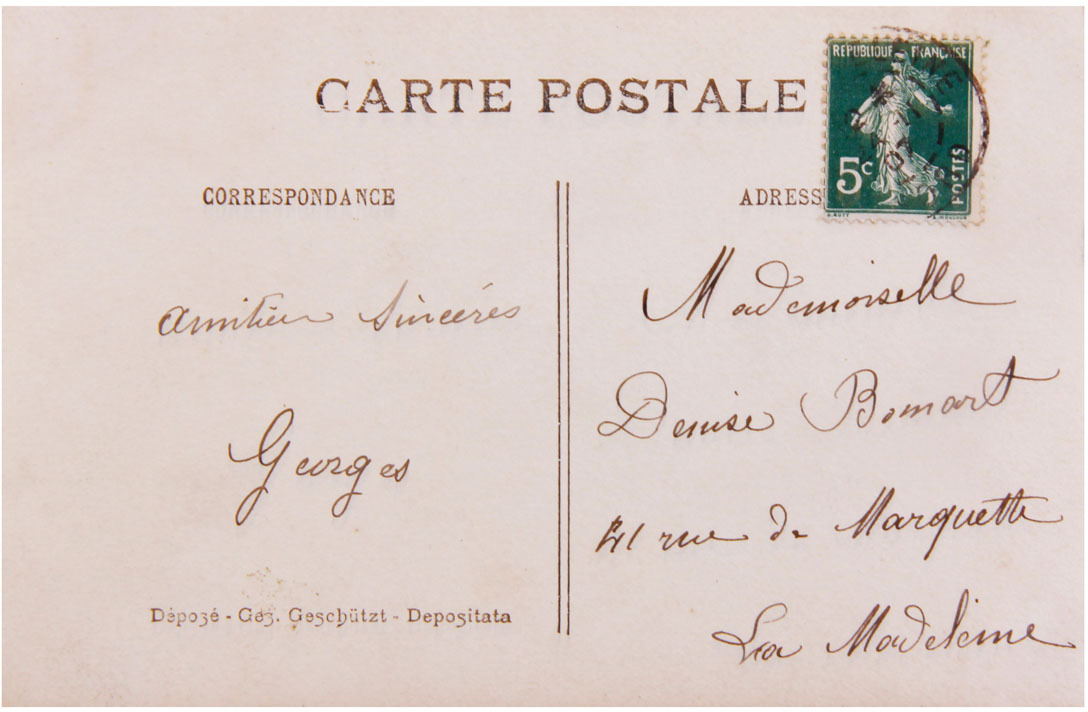 CARTE POSTALE
REPUBLIQUE FRANÇAISE
5c
POSTES
CORRESPONDANCE
ADRESS
amitiés Sincéres
Georges
Mademoiselle
Denise Bomart
41 rue de Marquette
La Madeleine
Déposé - Ges. Geschützt - Depositata